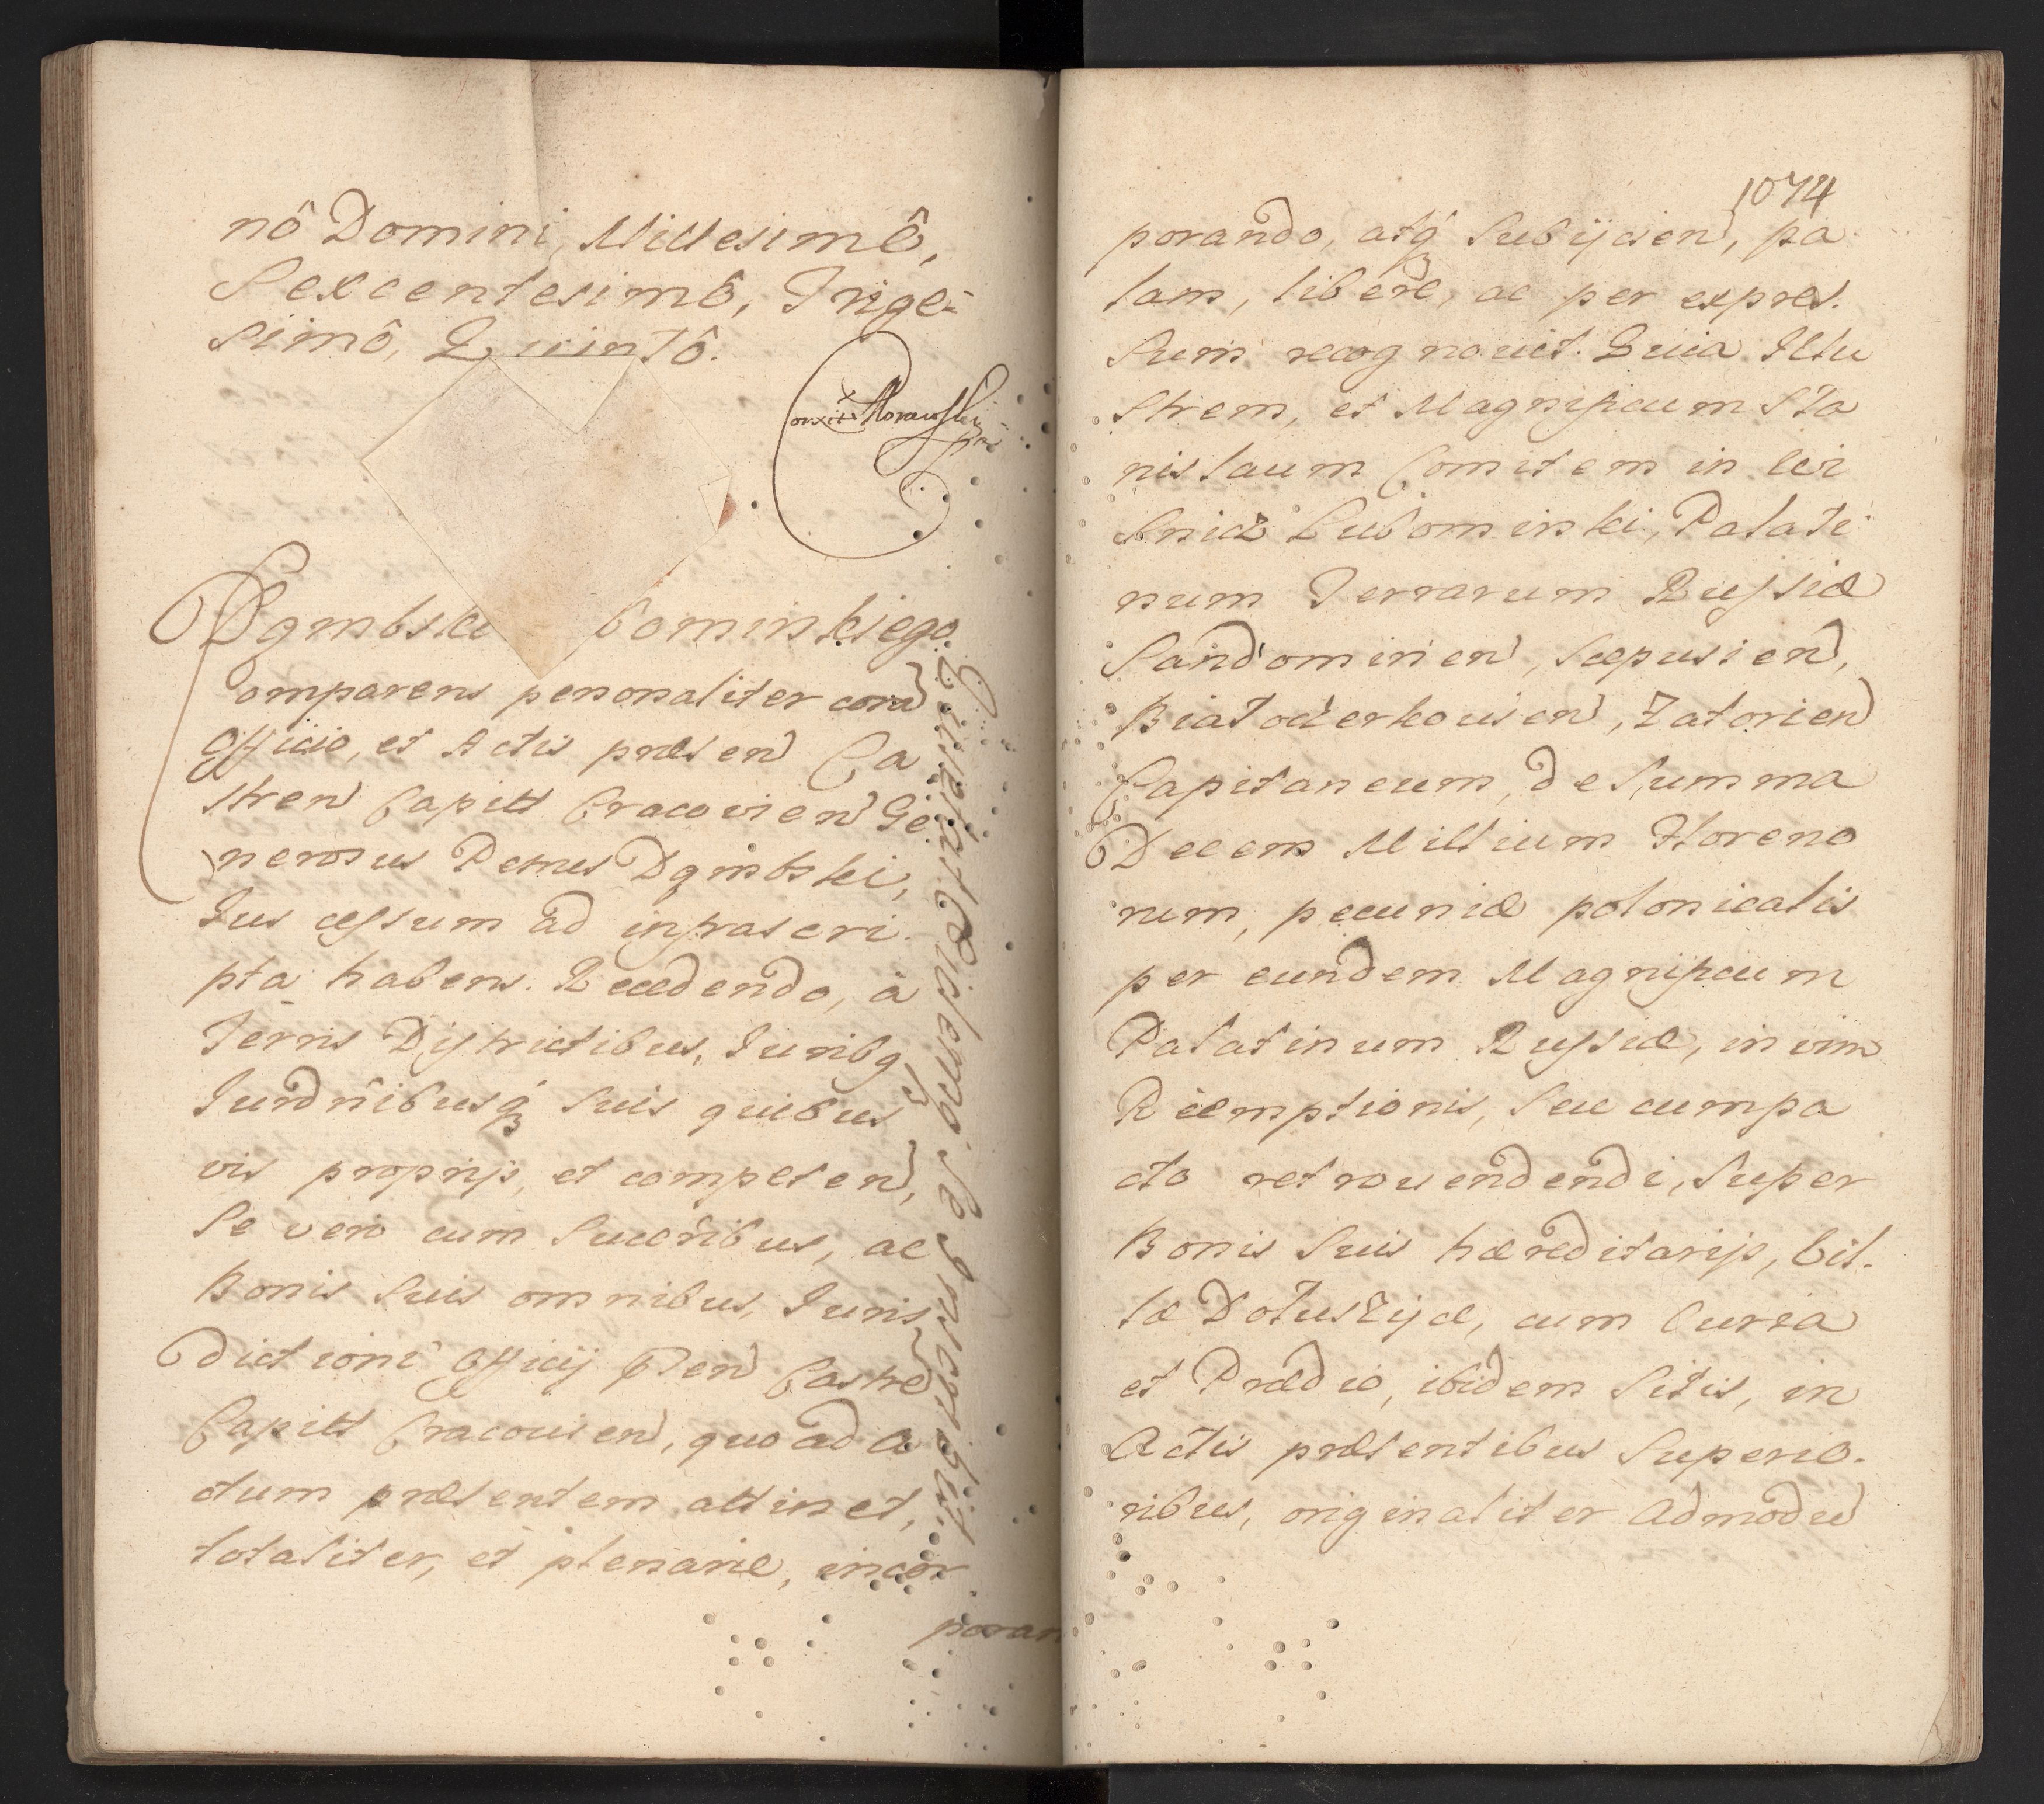 nô Domini, Millesimô,
Sexcentesimô, Trige-
simô, Quintô.
Dąmbski bominskiego
omparens personaliter corã
Officio, et Actis præsen Ca
stren Capitt Cracovien Ge
nerosus Petrus Dąmbski,
Ius cessum ad infrascri
pta habens. Recedendo, à
Terris Districtibus, Iuribq,
Iurdnibusq́ suis quibus
vis proprijs, et competen,
Se vero cum Succribus, ac
Bonis suis omnibus, Iuris
dictioni Officij pñen Castrẽ
Capitt Cracovien, quo ad a
ctum præsentem attinet,
totaliter, et plenarie, incor
poran
1074
porando, atq́ Subijcien, pa
lam, libere, ac per expres.
Sum recognovit. Quia Illu
Strem, et Magnificum Sta
nislaum Comitem in Wi
snicz Lubomirski, Palati
num Terrarum Russiæ
Sandomirien, Scepusien,
Biatocerkovien, Zatorien
Capitaneum, de Summa
Decem Millium Floreno
rum, pecuniæ polonicalis
per eundem Magnificum
Palatinum Russiæ, in vim
Reemptionis, Seu cum pa
cto retrovendendi, Super
Bonis Suis hæreditarijs, Vil.
læ Dołuszycæ, cum Curia
et Prædio, ibidem Sitis, in
Actis præsentibus Superio.
ribus, originaliter Admodũ